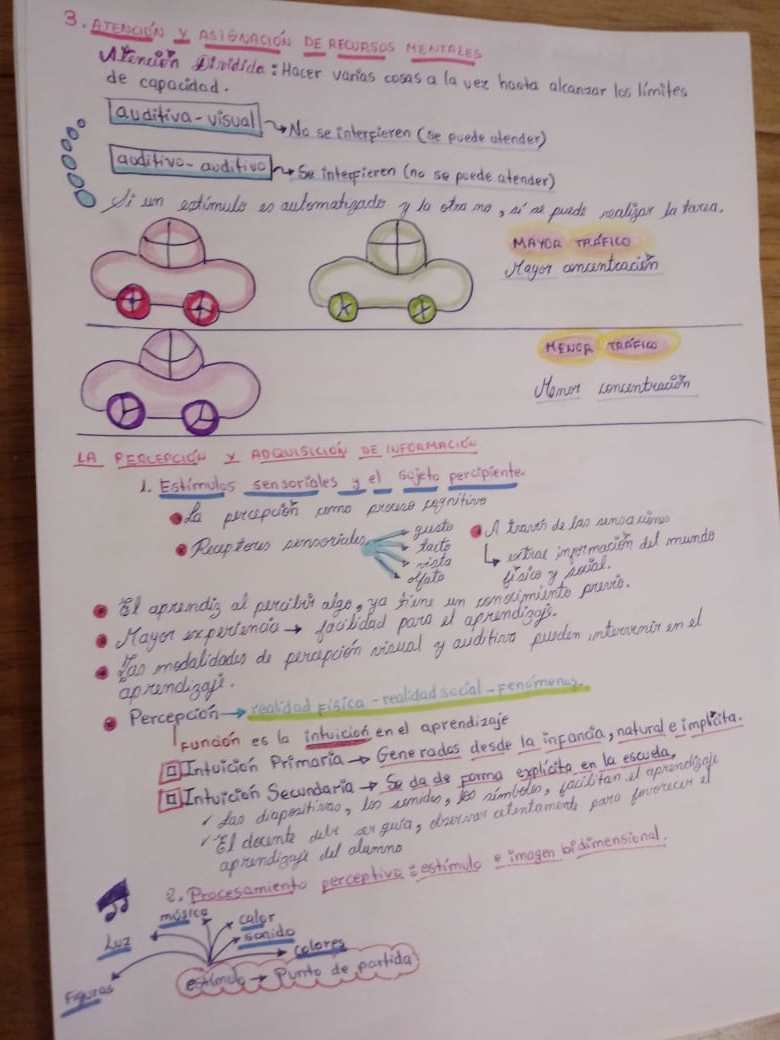 3. ATENCIÓN Y ASIGNACIÓN DE RECURSOS MENTALES
Atención Dividida: Hacer varias cosas a la vez hasta alcanzar los límites
de capacidad.
auditiva-visual → No se interfieren (se puede atender)
auditivo-auditivo → Se interfieren (no se puede atender)
Si un estímulo es automatizado y la otra no, si se puede realizar la tarea.
MAYOR TRÁFICO
Mayor concentración
MENOR TRÁFICO
Menor concentración
LA PERCEPCIÓN Y ADQUISICIÓN DE INFORMACIÓN
1. Estímulos sensoriales y el sujeto percipiente.
La percepción como proceso cognitivo
Receptores sensoriales
gusto
tacto
vista
olfato
A través de las sensaciones
extrae información del mundo
físico y social.
El aprendiz al percibir algo, ya tiene un conocimiento previo.
Mayor experiencia → facilidad para el aprendizaje.
Las modalidades de percepción visual y auditiva pueden intervenir en el
aprendizaje.
Percepción → realidad física - realidad social - Fenómenos.
Función es la intuición en el aprendizaje
Intuición Primaria → Generados desde la infancia, natural e implícita.
Intuición Secundaria → Se da de forma explícita en la escuela,
✓ Las diapositivas, los sonidos, los símbolos, facilitan el aprendizaje
✓ El docente debe ser guía, observar atentamente para favorecer el
aprendizaje del alumno
2. Procesamiento perceptivo: estímulo e imagen bidimensional.
música
calor
Luz
sonido
colores
Figuras
estímulo → Punto de partida